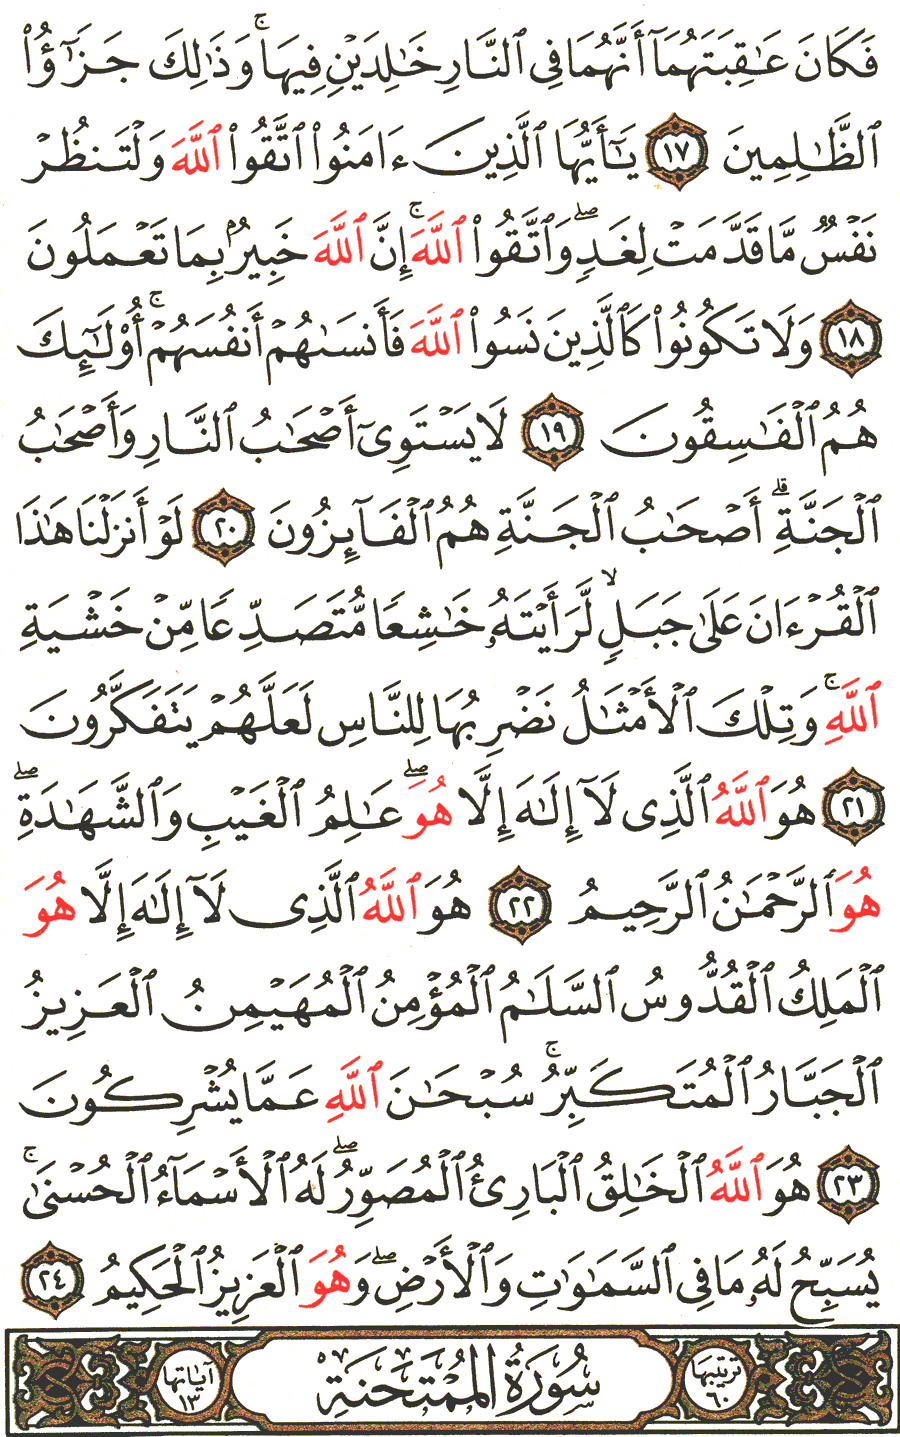 فَكَانَ عَـٰقِبَتَهُمَآ أَنَّهُمَا فِى ٱلنَّارِ خَـٰلِدَيْنِ فِيهَا ۚ وَذَٰلِكَ جَزَٰٓؤُا۟
ٱلظَّـٰلِمِينَ ١٧ يَـٰٓأَيُّهَا ٱلَّذِينَ ءَامَنُوا۟ ٱتَّقُوا۟ ٱللَّهَ وَلْتَنظُرْ
نَفْسٌ مَّا قَدَّمَتْ لِغَدٍ ۖ وَٱتَّقُوا۟ ٱللَّهَ ۚ إِنَّ ٱللَّهَ خَبِيرٌۢ بِمَا تَعْمَلُونَ
١٨ وَلَا تَكُونُوا۟ كَٱلَّذِينَ نَسُوا۟ ٱللَّهَ فَأَنسَىٰهُمْ أَنفُسَهُمْ ۚ أُو۟لَـٰٓئِكَ
هُمُ ٱلْفَـٰسِقُونَ ١٩ لَا يَسْتَوِىٓ أَصْحَـٰبُ ٱلنَّارِ وَأَصْحَـٰبُ
ٱلْجَنَّةِ ۚ أَصْحَـٰبُ ٱلْجَنَّةِ هُمُ ٱلْفَآئِزُونَ ٢٠ لَوْ أَنزَلْنَا هَـٰذَا
ٱلْقُرْءَانَ عَلَىٰ جَبَلٍ ۙ لَّرَأَيْتَهُۥ خَـٰشِعًا مُّتَصَدِّعًا مِّنْ خَشْيَةِ
ٱللَّهِ ۚ وَتِلْكَ ٱلْأَمْثَـٰلُ نَضْرِبُهَا لِلنَّاسِ لَعَلَّهُمْ يَتَفَكَّرُونَ
٢١ هُوَ ٱللَّهُ ٱلَّذِى لَآ إِلَـٰهَ إِلَّا هُوَ ۖ عَـٰلِمُ ٱلْغَيْبِ وَٱلشَّهَـٰدَةِ ۖ
هُوَ ٱلرَّحْمَـٰنُ ٱلرَّحِيمُ ٢٢ هُوَ ٱللَّهُ ٱلَّذِى لَآ إِلَـٰهَ إِلَّا هُوَ
ٱلْمَلِكُ ٱلْقُدُّوسُ ٱلسَّلَـٰمُ ٱلْمُؤْمِنُ ٱلْمُهَيْمِنُ ٱلْعَزِيزُ
ٱلْجَبَّارُ ٱلْمُتَكَبِّرُ ۚ سُبْحَـٰنَ ٱللَّهِ عَمَّا يُشْرِكُونَ
٢٣ هُوَ ٱللَّهُ ٱلْخَـٰلِقُ ٱلْبَارِئُ ٱلْمُصَوِّرُ ۖ لَهُ ٱلْأَسْمَآءُ ٱلْحُسْنَىٰ ۚ
يُسَبِّحُ لَهُۥ مَا فِى ٱلسَّمَـٰوَٰتِ وَٱلْأَرْضِ ۖ وَهُوَ ٱلْعَزِيزُ ٱلْحَكِيمُ ٢٤
ترتيبها ٦٠ سُورَةُ المُمْتَحنَةِ آياتها ١٣